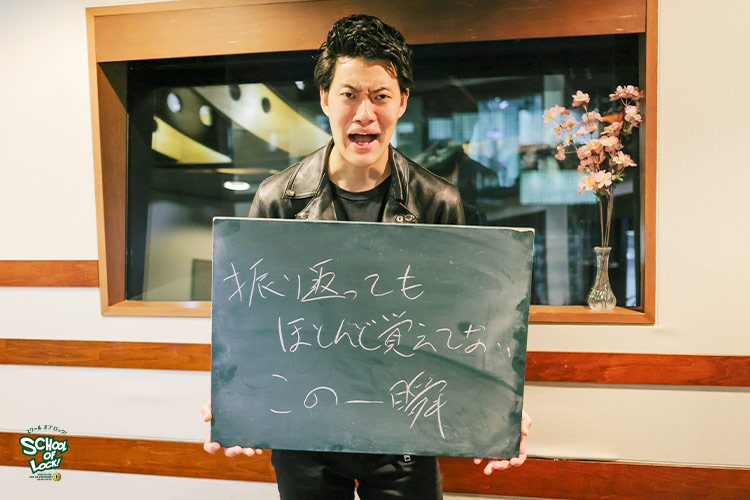 振り返っても
ほとんど覚えてない
この一瞬
スクール オブ ロック!
SCHOOL
OF
LOCK!